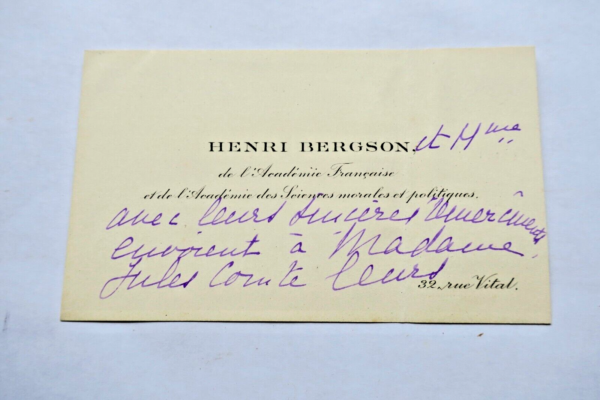 HENRI BERGSON, et Mme
de l'Académie Française
et de l'Académie des Sciences morales et politiques.
avec leurs sincères remerciements,
envoient à Madame
Jules Comte leurs
32, rue Vital.